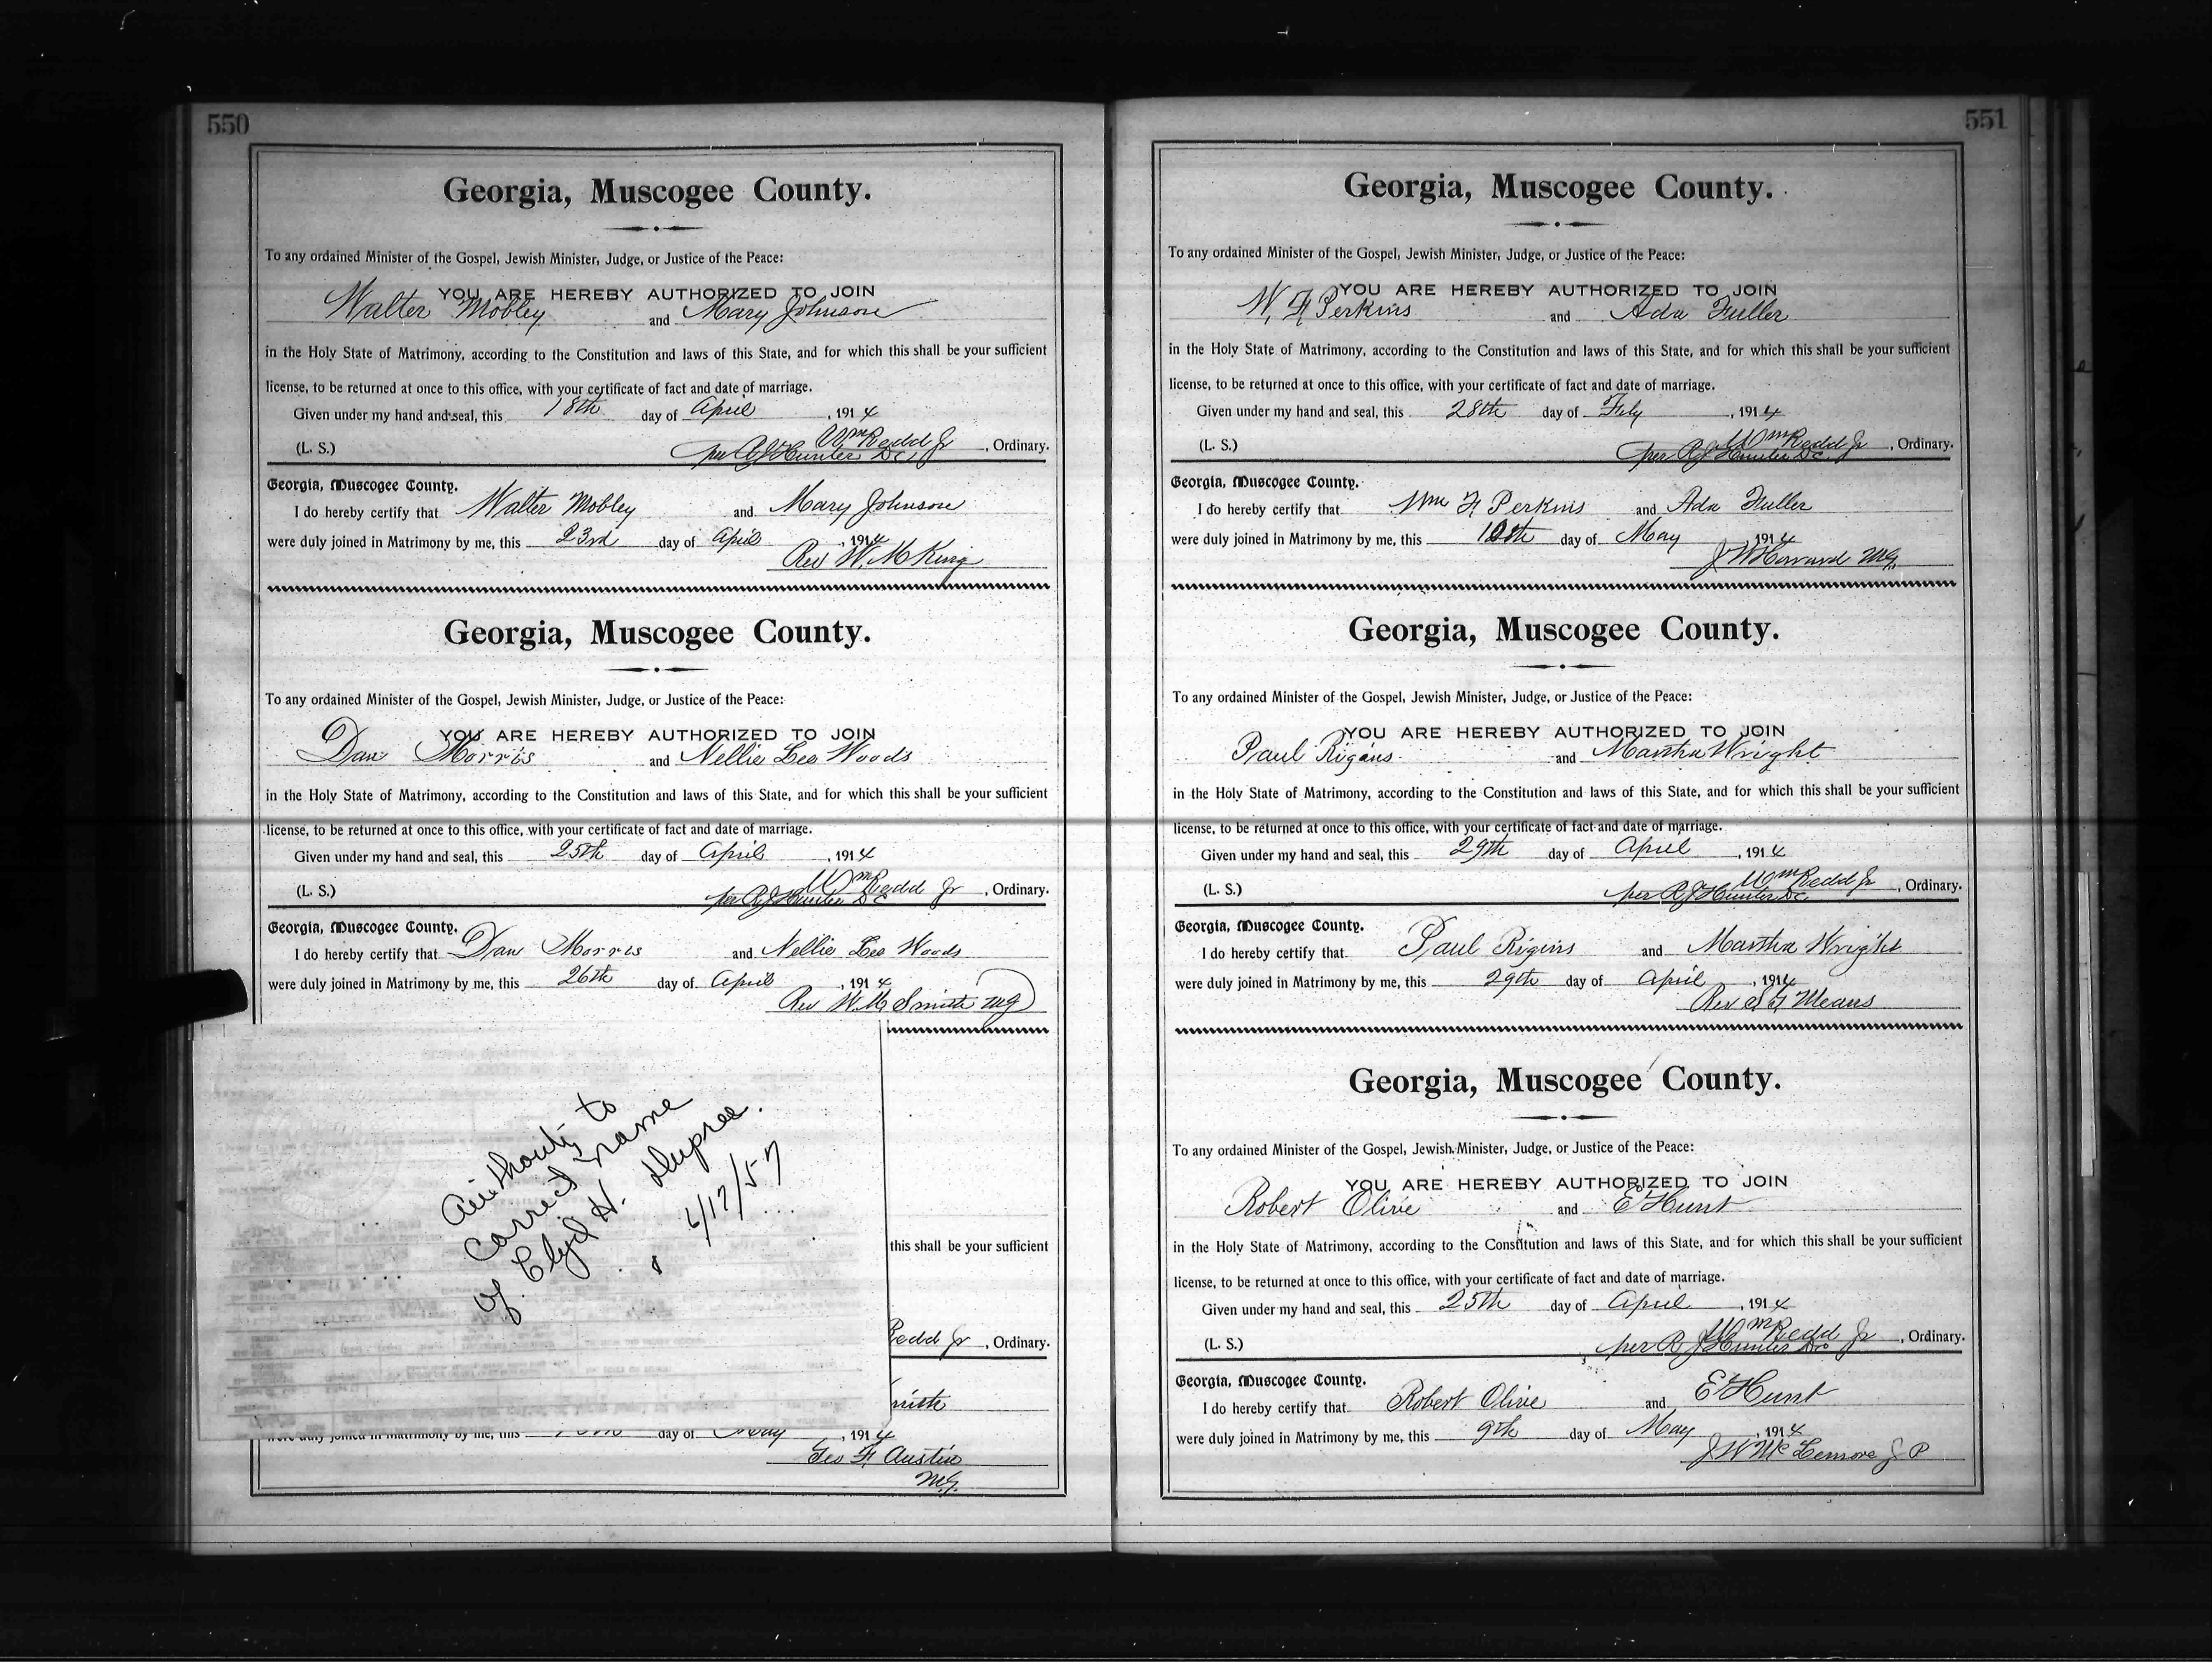 550
Georgia, Muscogee County.
To any ordained Minister of the Gospel, Jewish Minister, Judge, or Justice of the Peace:
YOU ARE HEREBY AUTHORIZED TO JOIN
Walter Mobley and Mary Johnson
in the Holy State of Matrimony, according to the Constitution and laws of this State, and for which this shall be your sufficient
license, to be returned at once to this office, with your certificate of fact and date of marriage.
Given under my hand and seal, this 18th day of April, 1914
(L. S.) Wm Redd Jr, Ordinary.
per R J Hunter D C
Georgia, Muscogee County.
I do hereby certify that Walter Mobley and Mary Johnson
were duly joined in Matrimony by me, this 23rd day of April, 1914
Rev W. M King
Georgia, Muscogee County.
To any ordained Minister of the Gospel, Jewish Minister, Judge, or Justice of the Peace:
YOU ARE HEREBY AUTHORIZED TO JOIN
Dan Morris and Nellie Lee Woods
in the Holy State of Matrimony, according to the Constitution and laws of this State, and for which this shall be your sufficient
license, to be returned at once to this office, with your certificate of fact and date of marriage.
Given under my hand and seal, this 25th day of April, 1914
(L. S.) Wm Redd Jr, Ordinary.
per R J Hunter D C
Georgia, Muscogee County.
I do hereby certify that Dan Morris and Nellie Lee Woods
were duly joined in Matrimony by me, this 26th day of April, 1914
Rev W. M Smith MG
Authority to
correct name
of Clyd H. Dupree.
6/17/57
this shall be your sufficient
Redd Jr, Ordinary.
mith
were duly joined in Matrimony by me, this day of May, 1914
Geo F. Austin
M.G.
551
Georgia, Muscogee County.
To any ordained Minister of the Gospel, Jewish Minister, Judge, or Justice of the Peace:
YOU ARE HEREBY AUTHORIZED TO JOIN
W. F. Perkins and Ada Fuller
in the Holy State of Matrimony, according to the Constitution and laws of this State, and for which this shall be your sufficient
license, to be returned at once to this office, with your certificate of fact and date of marriage.
Given under my hand and seal, this 28th day of Feby, 1914
(L. S.) Wm Redd Jr, Ordinary.
per R J Hunter D C
Georgia, Muscogee County.
I do hereby certify that Wm F. Perkins and Ada Fuller
were duly joined in Matrimony by me, this 10th day of May, 1914
J W Howard MG.
Georgia, Muscogee County.
To any ordained Minister of the Gospel, Jewish Minister, Judge, or Justice of the Peace:
YOU ARE HEREBY AUTHORIZED TO JOIN
Paul Rigins and Martha Wright
in the Holy State of Matrimony, according to the Constitution and laws of this State, and for which this shall be your sufficient
license, to be returned at once to this office, with your certificate of fact and date of marriage.
Given under my hand and seal, this 29th day of April, 1914
(L. S.) Wm Redd Jr, Ordinary.
per R J Hunter D C
Georgia, Muscogee County.
I do hereby certify that Paul Rigins and Martha Wright
were duly joined in Matrimony by me, this 29th day of April, 1914
Rev Means
Georgia, Muscogee County.
To any ordained Minister of the Gospel, Jewish Minister, Judge, or Justice of the Peace:
YOU ARE HEREBY AUTHORIZED TO JOIN
Robert Olive and E Hunt
in the Holy State of Matrimony, according to the Constitution and laws of this State, and for which this shall be your sufficient
license, to be returned at once to this office, with your certificate of fact and date of marriage.
Given under my hand and seal, this 25th day of April, 1914
(L. S.) Wm Redd Jr, Ordinary.
per R J Hunter D C
Georgia, Muscogee County.
I do hereby certify that Robert Olive and E Hunt
were duly joined in Matrimony by me, this 9th day of May, 1914
J W McLemore J P